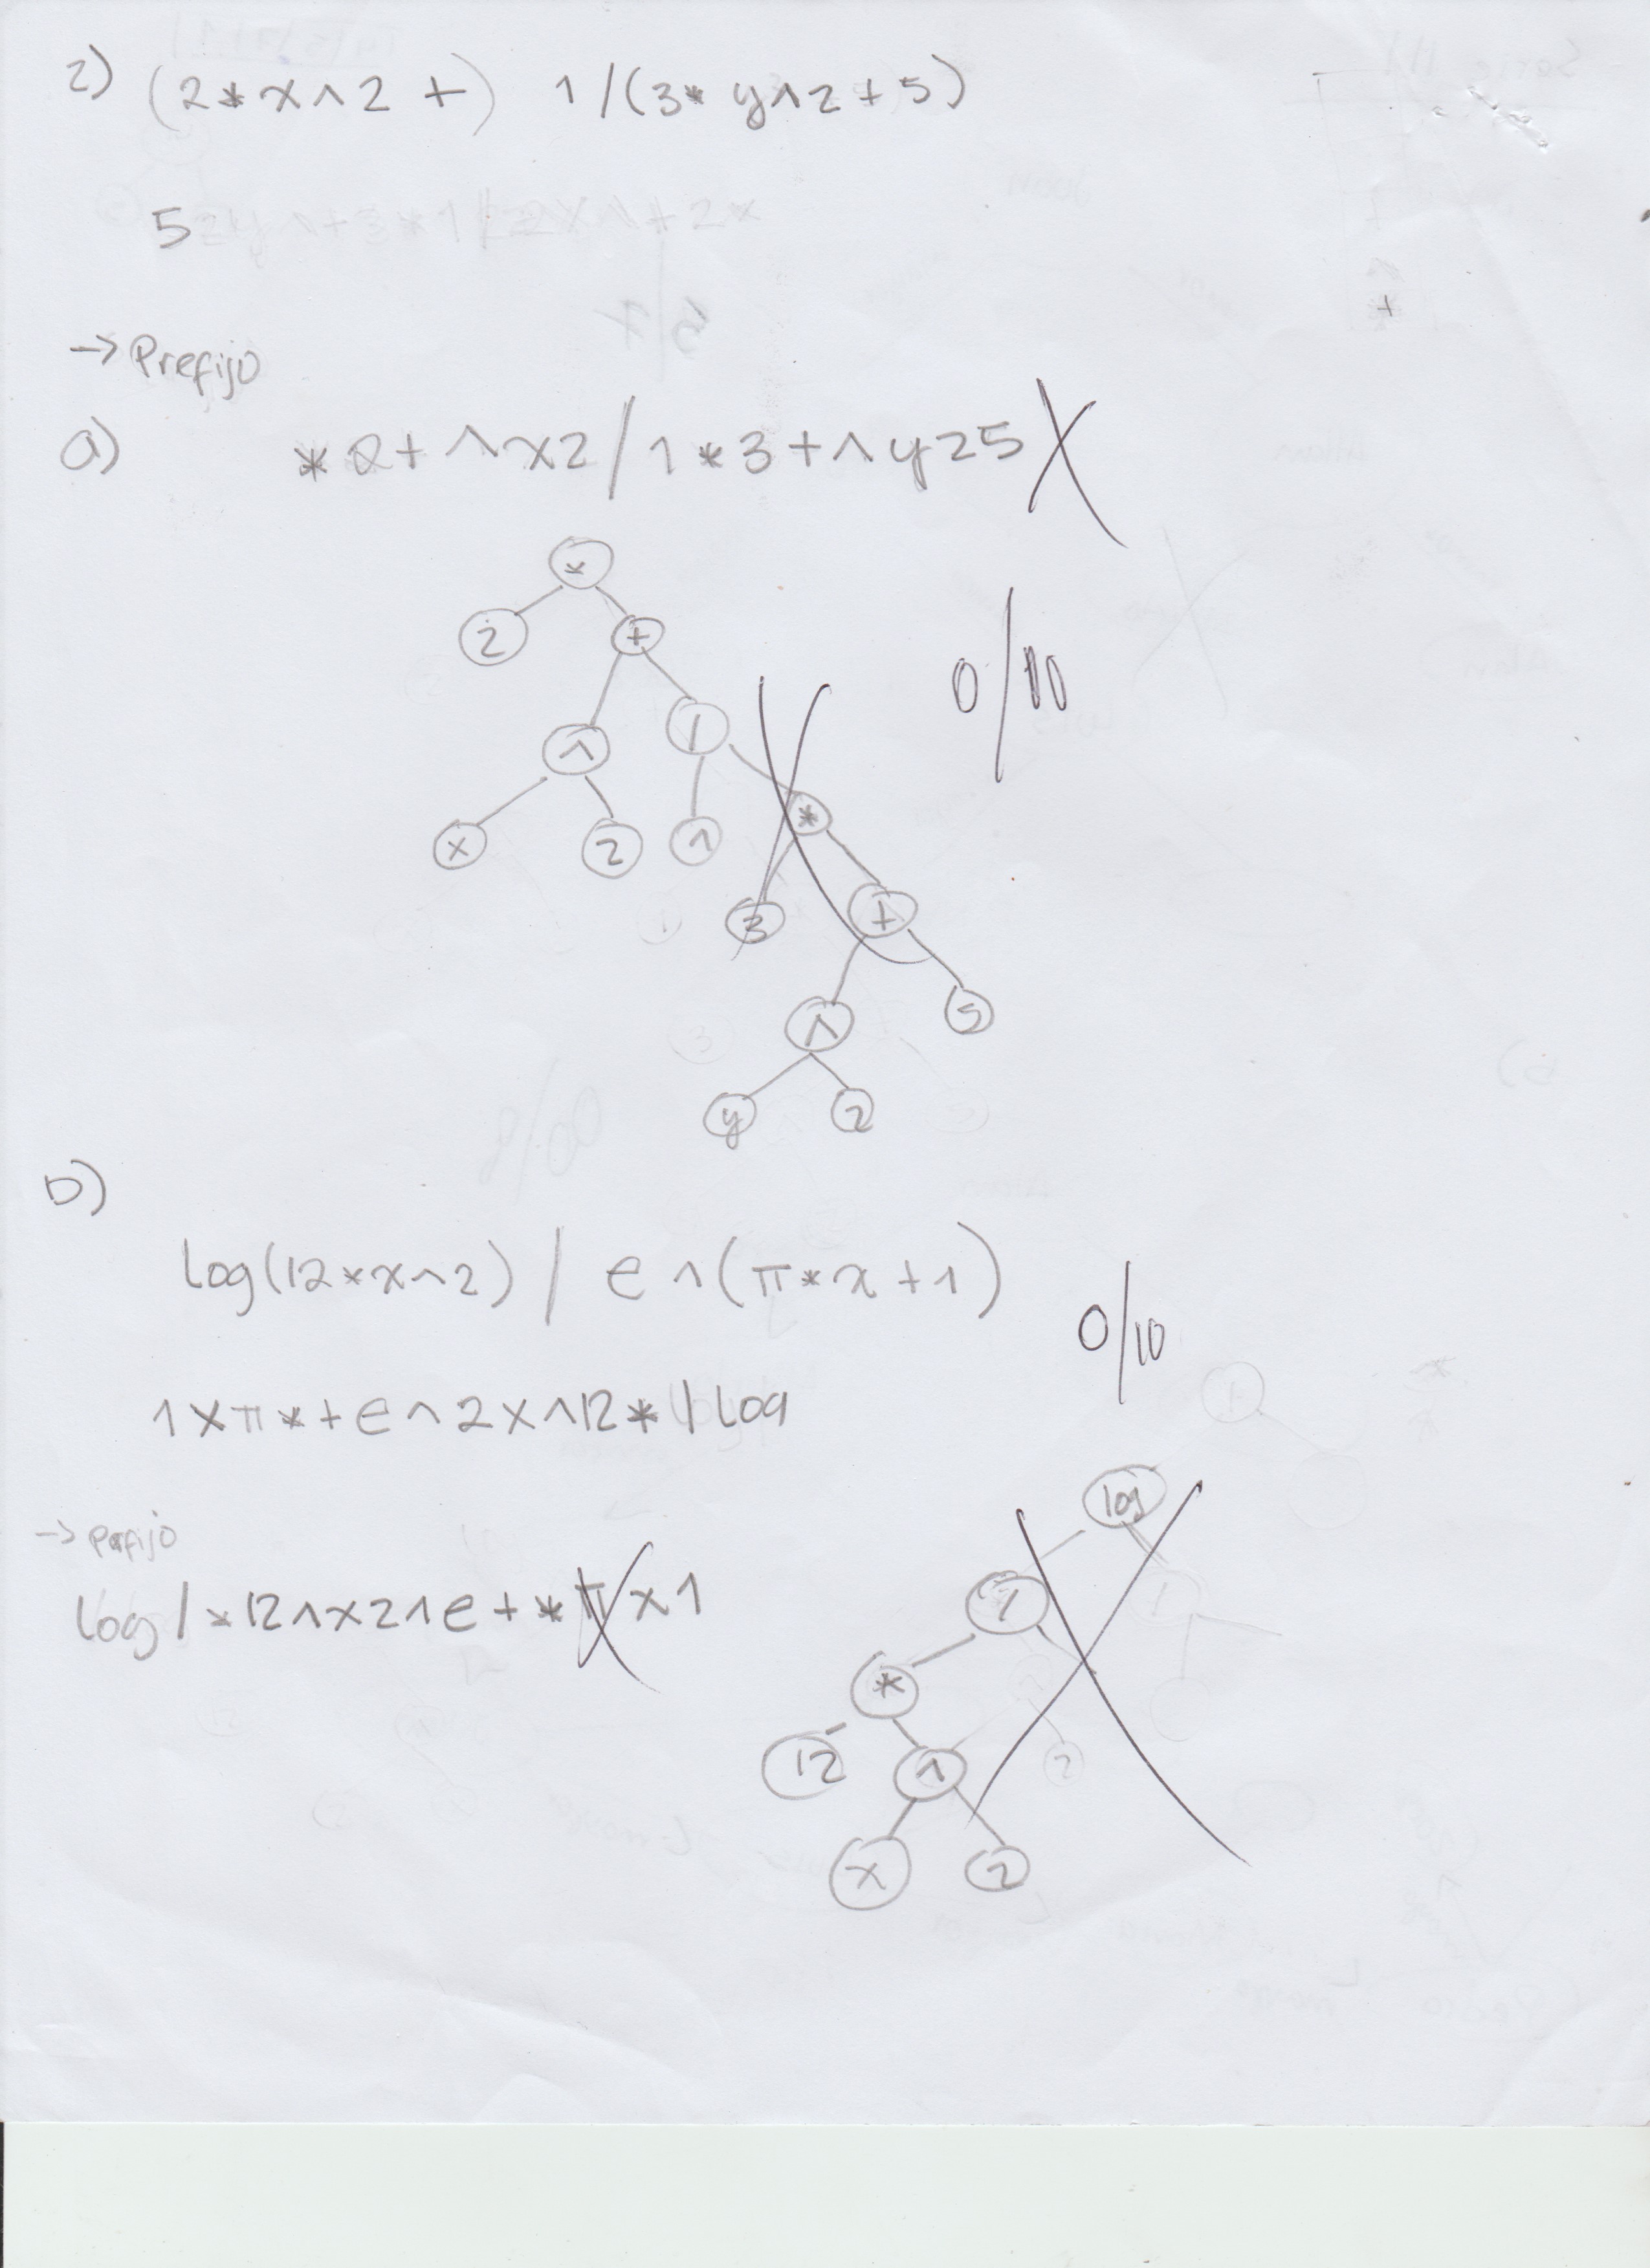 2) (2*x^2 +) 1/(3*y^2+5)
5 2y^+3*1/2x^+2*
→ Prefijo
a) *2+^x2/1*3+^y25
*
2 +
^ /
x 2 1 *
3 +
^ 5
y 2
0/10
b)
log(12*x^2) / e^(π*x+1)
0/10
1xπ*+e^2x^12*/log
→ Prefijo
log/*12^x2^e+*πx1
log
/
*
12 ^
x 2